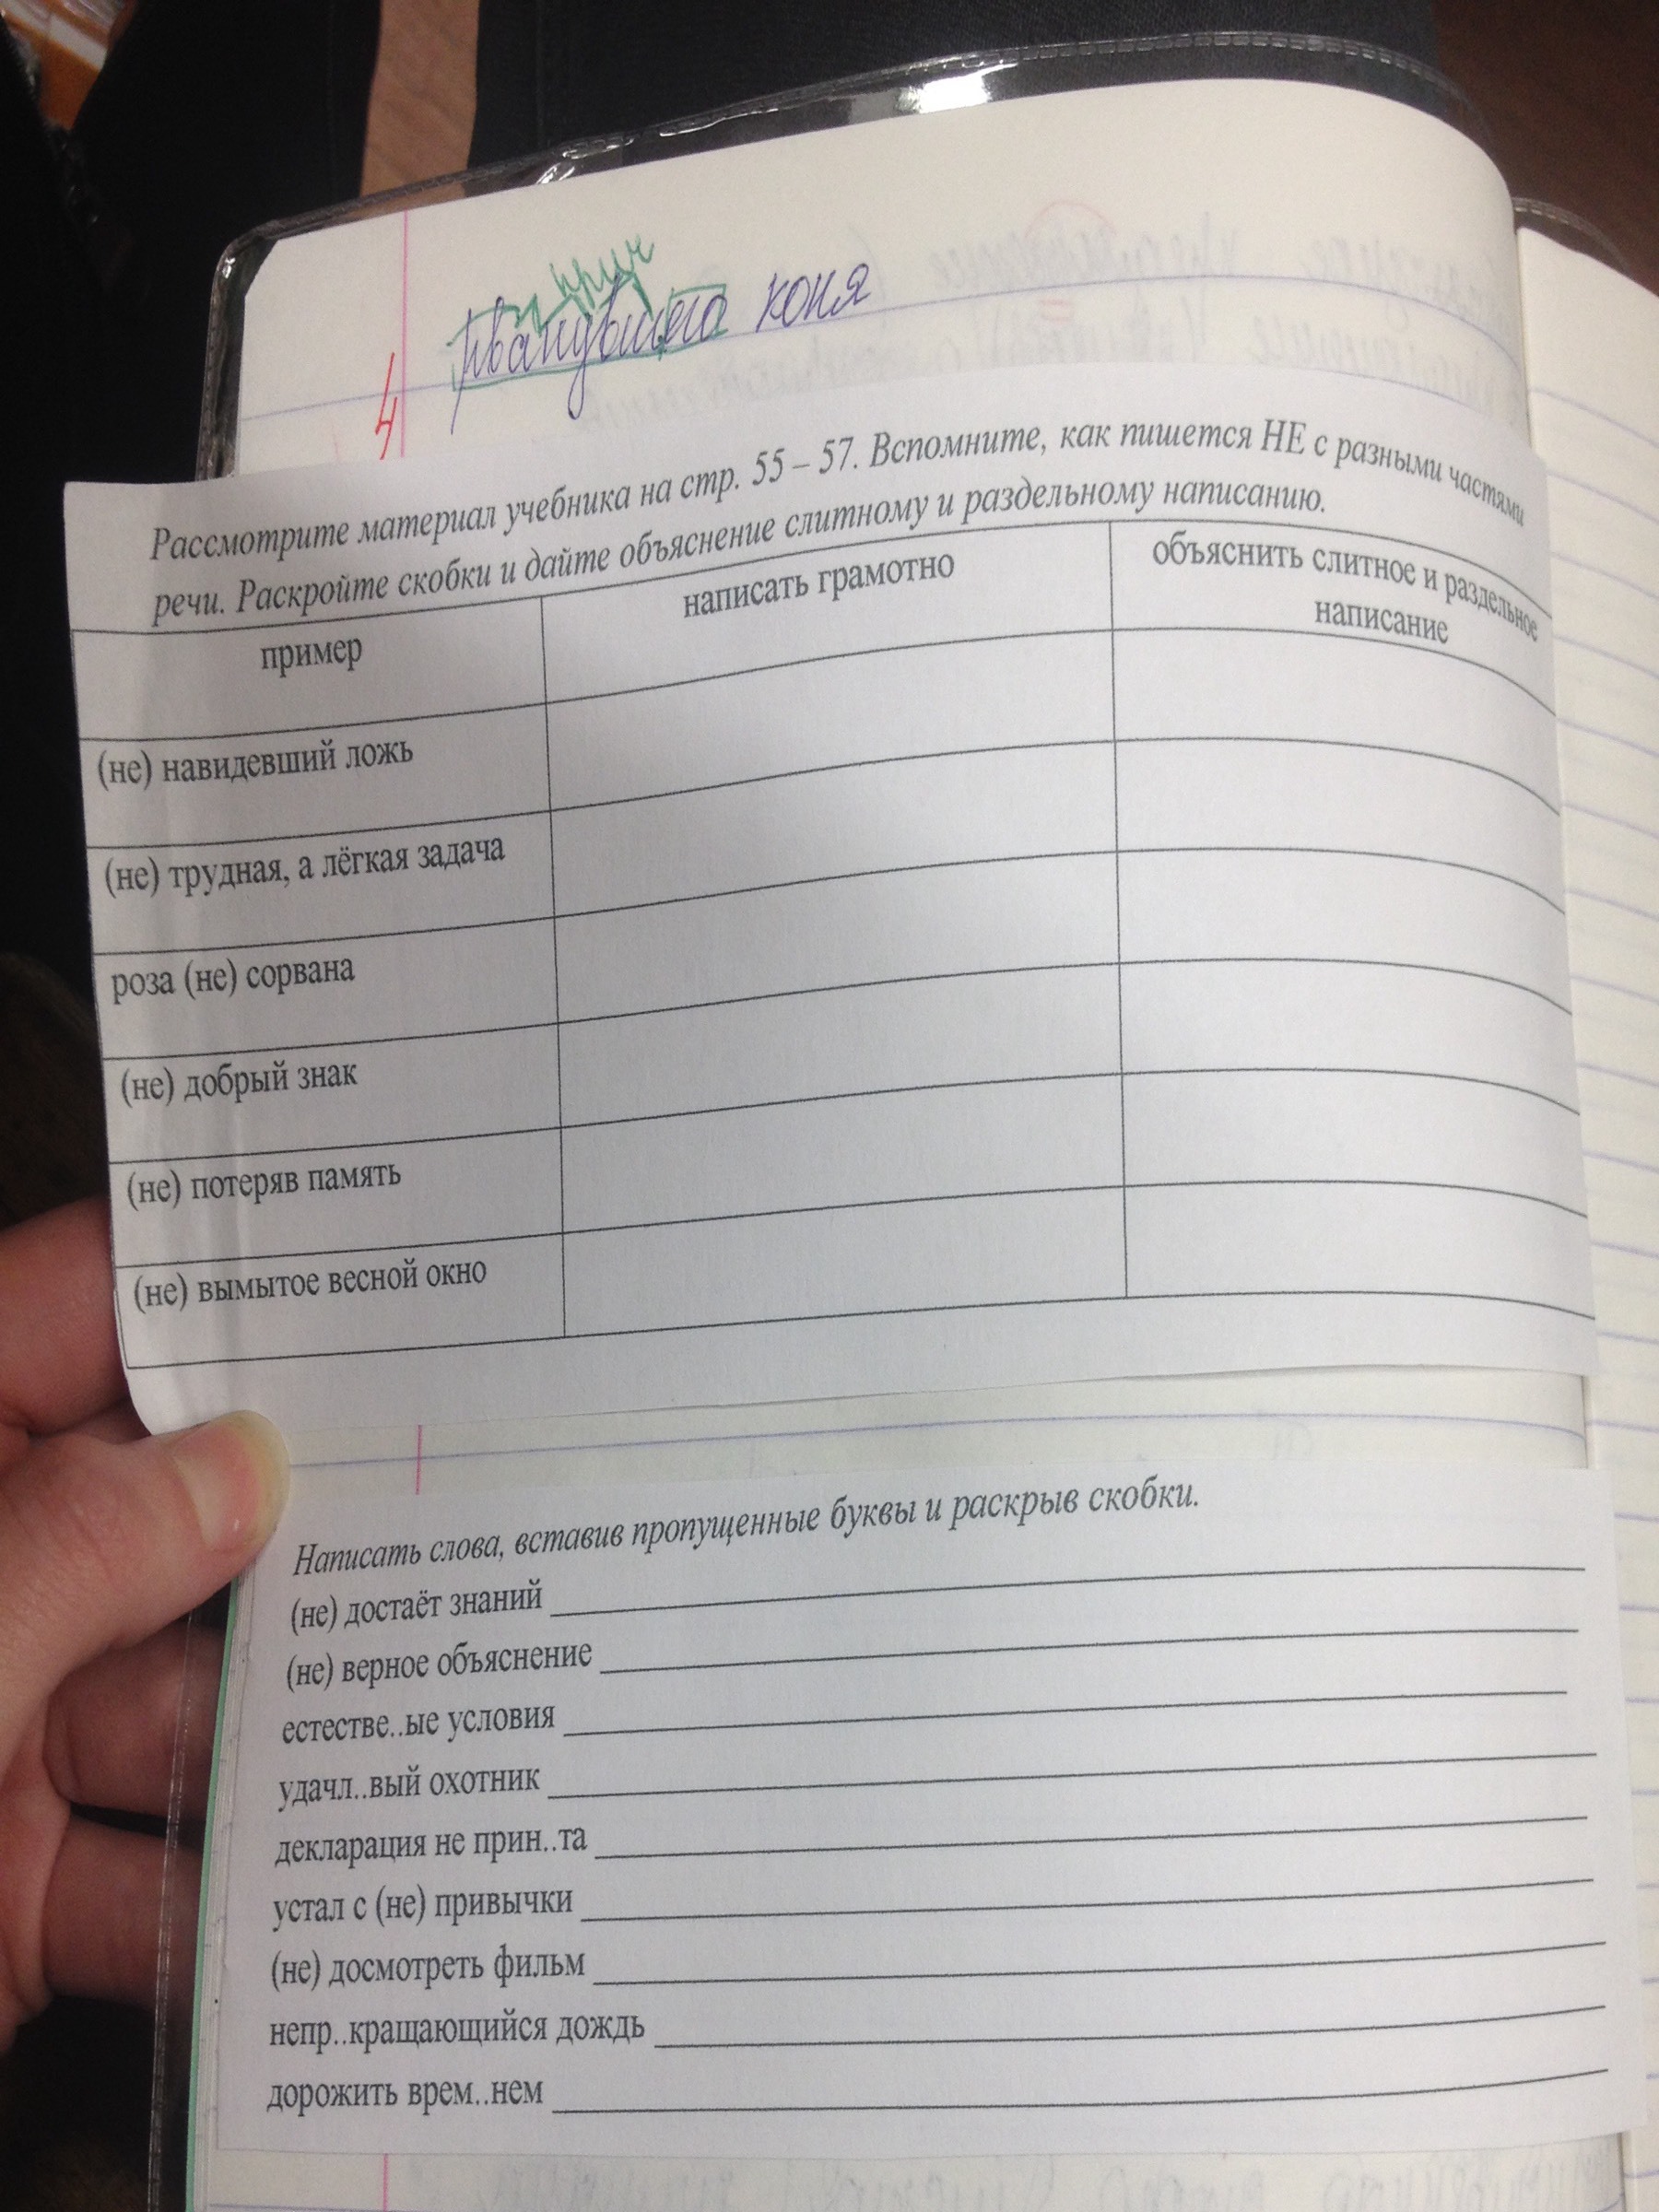 прич
рванувшего коня
4
Рассмотрите материал учебника на стр. 55 – 57. Вспомните, как пишется НЕ с разными частями
речи. Раскройте скобки и дайте объяснение слитному и раздельному написанию.
пример
написать грамотно
объяснить слитное и раздельное
написание
(не) навидевший ложь
(не) трудная, а лёгкая задача
роза (не) сорвана
(не) добрый знак
(не) потеряв память
(не) вымытое весной окно
Написать слова, вставив пропущенные буквы и раскрыв скобки.
(не) достаёт знаний
(не) верное объяснение
естестве..ые условия
удачл..вый охотник
декларация не прин..та
устал с (не) привычки
(не) досмотреть фильм
непр..кращающийся дождь
дорожить врем..нем